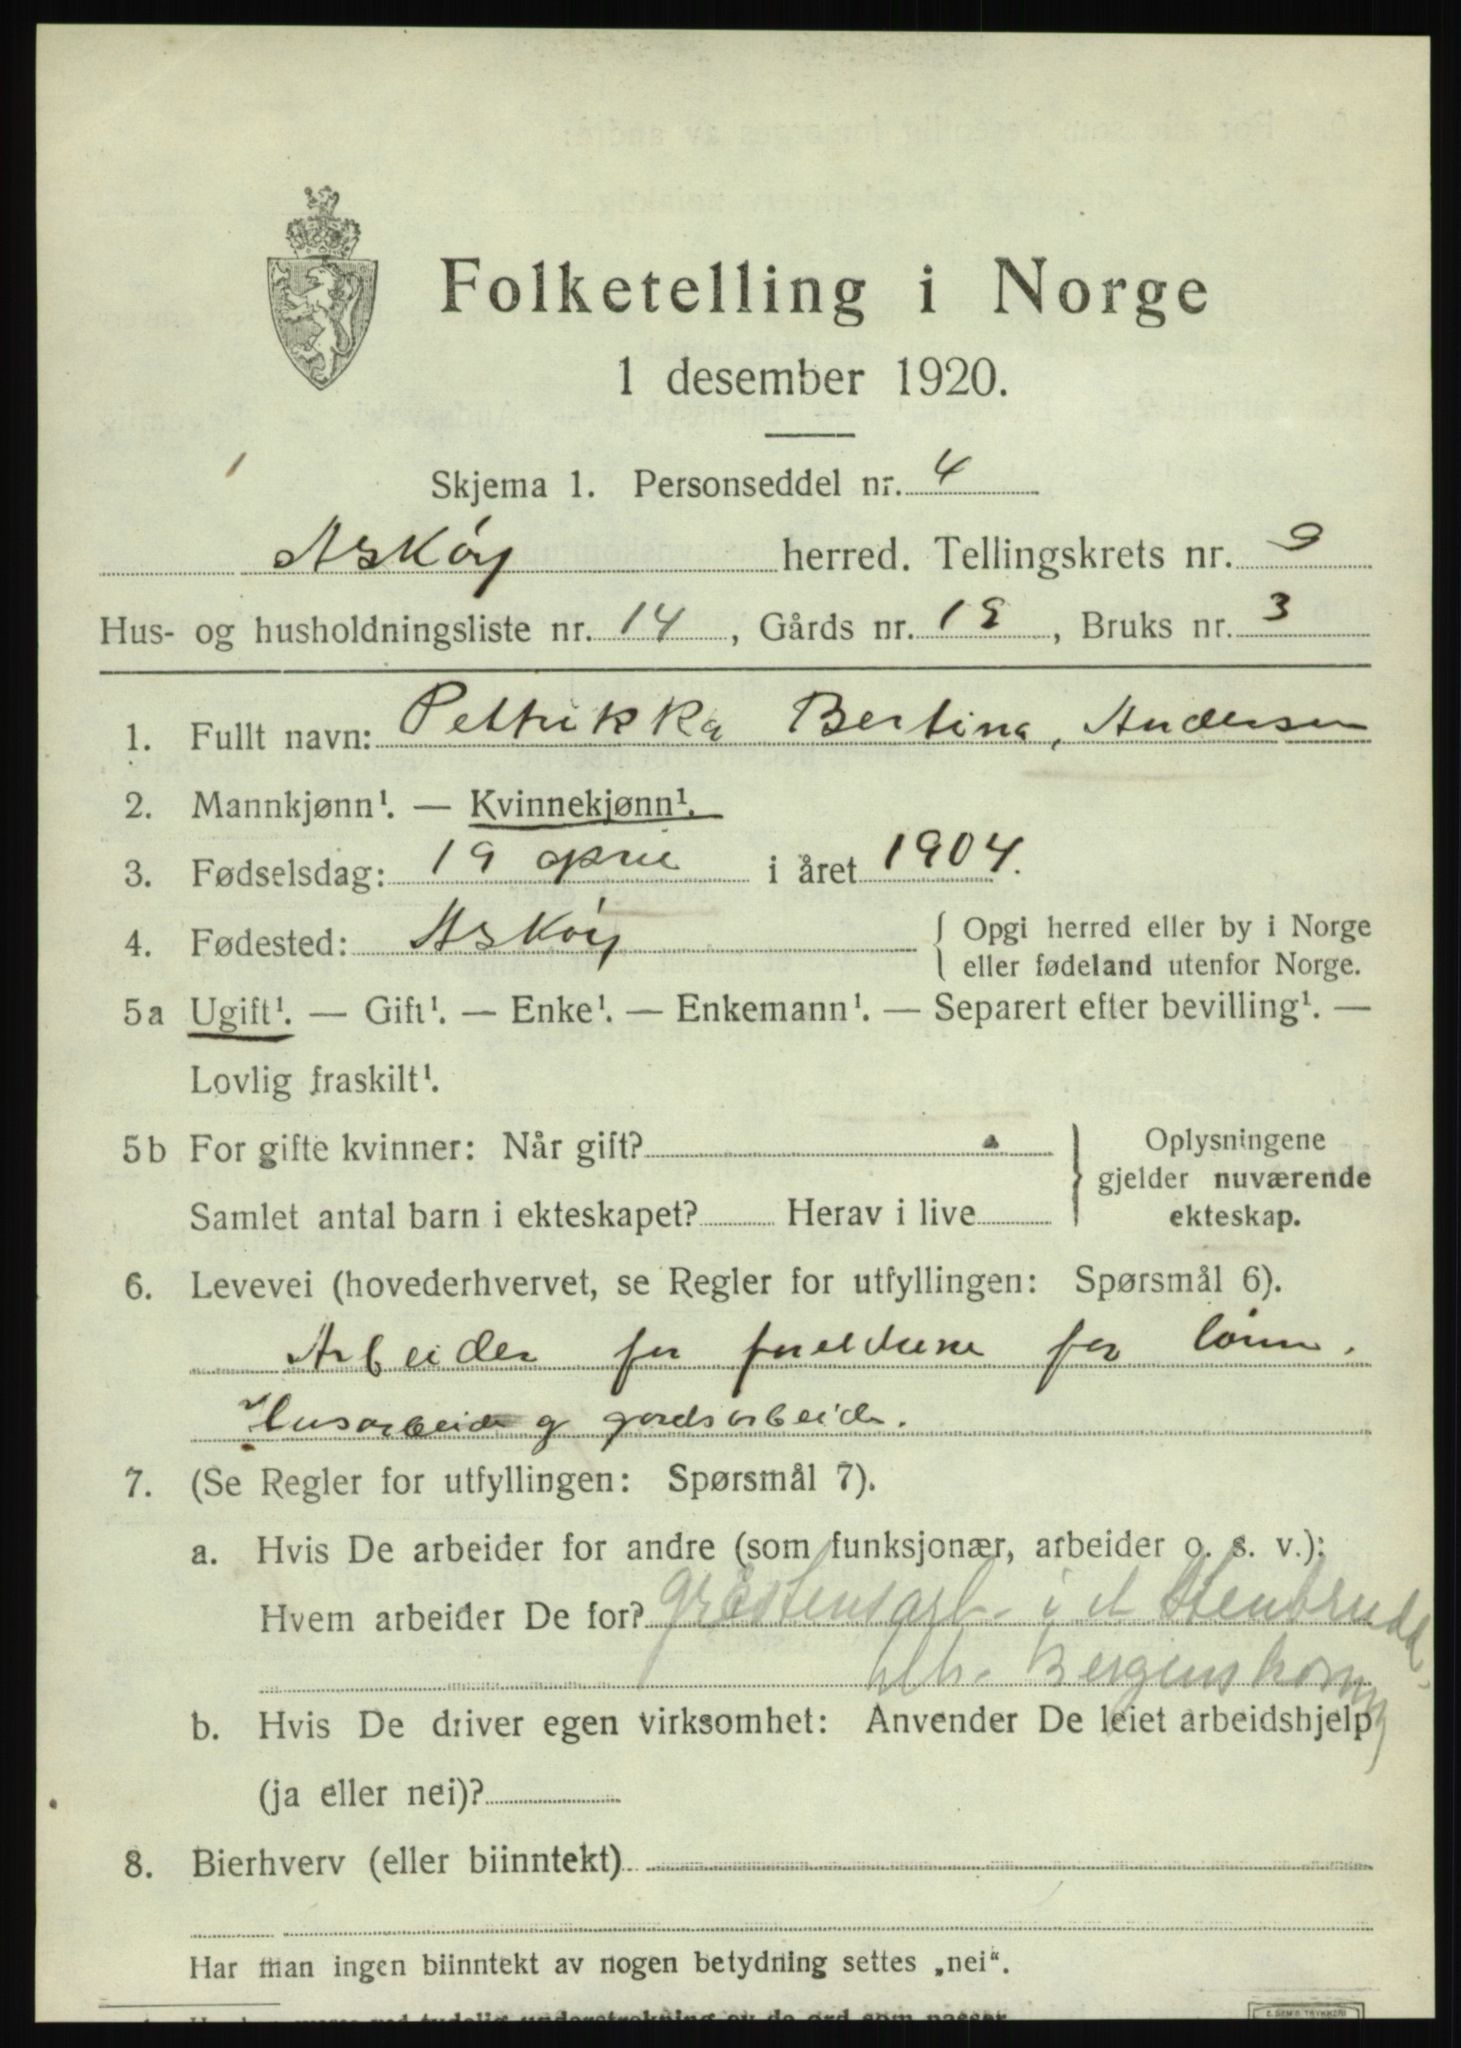 Folketelling i Norge
1 desember 1920.
Skjema 1. Personseddel nr. 4
Askøy herred. Tellingskrets nr. 9
Hus- og husholdningsliste nr. 14, Gårds nr. 19, Bruks nr. 3
1. Fullt navn: Pettrikka Bertina, Andersen
2. Mannkjønn¹. — Kvinnekjønn¹.
3. Fødselsdag: 19 april i året 1904.
4. Fødested: Askøy { Opgi herred eller by i Norge
eller fødeland utenfor Norge.
5a Ugift¹. — Gift¹. — Enke¹. — Enkemann¹. — Separert efter bevilling¹. —
Lovlig fraskilt¹.
5b For gifte kvinner: Når gift? } Oplysningene
gjelder nuværende
Samlet antal barn i ekteskapet? Herav i live ekteskap.
6. Levevei (hovederhvervet, se Regler for utfyllingen: Spørsmål 6).
Arbeider for foreldrene for lønn.
Husarbeide og gardsarbeide.
7. (Se Regler for utfyllingen: Spørsmål 7).
a. Hvis De arbeider for andre (som funksjonær, arbeider o. s. v.):
Hvem arbeider De for? i et Stenbrudd
Bergens
b. Hvis De driver egen virksomhet: Anvender De leiet arbeidshjelp
(ja eller nei)?
8. Bierhverv (eller biinntekt) —
Har man ingen biinntekt av nogen betydning settes „nei“.
ved tydelig understrekning av de ord som passer